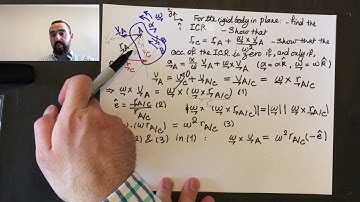 For the rigid body in plane: - find the
ICR
- Show that
r_C = r_A + (ω × v_A)/ω² - show that the
acc. of the ICR is zero if, and only if,
a_A = α/ω v_A + ω × v_A (α = α k̂, ω = ω k̂)
v_A = v_C + ω × r_A/C = ω × r_A/C (1)
⇒ ω × v_A = ω × (ω × r_A/C)
ê = r_A/C / r_A/C (2) |ω × (ω × r_A/C)| = |ω| |ω × r_A/C|
(ω r_A/C) = ω² r_A/C (3)
(2) & (3) in (1) : ω × v_A = ω² r_A/C (-ê)